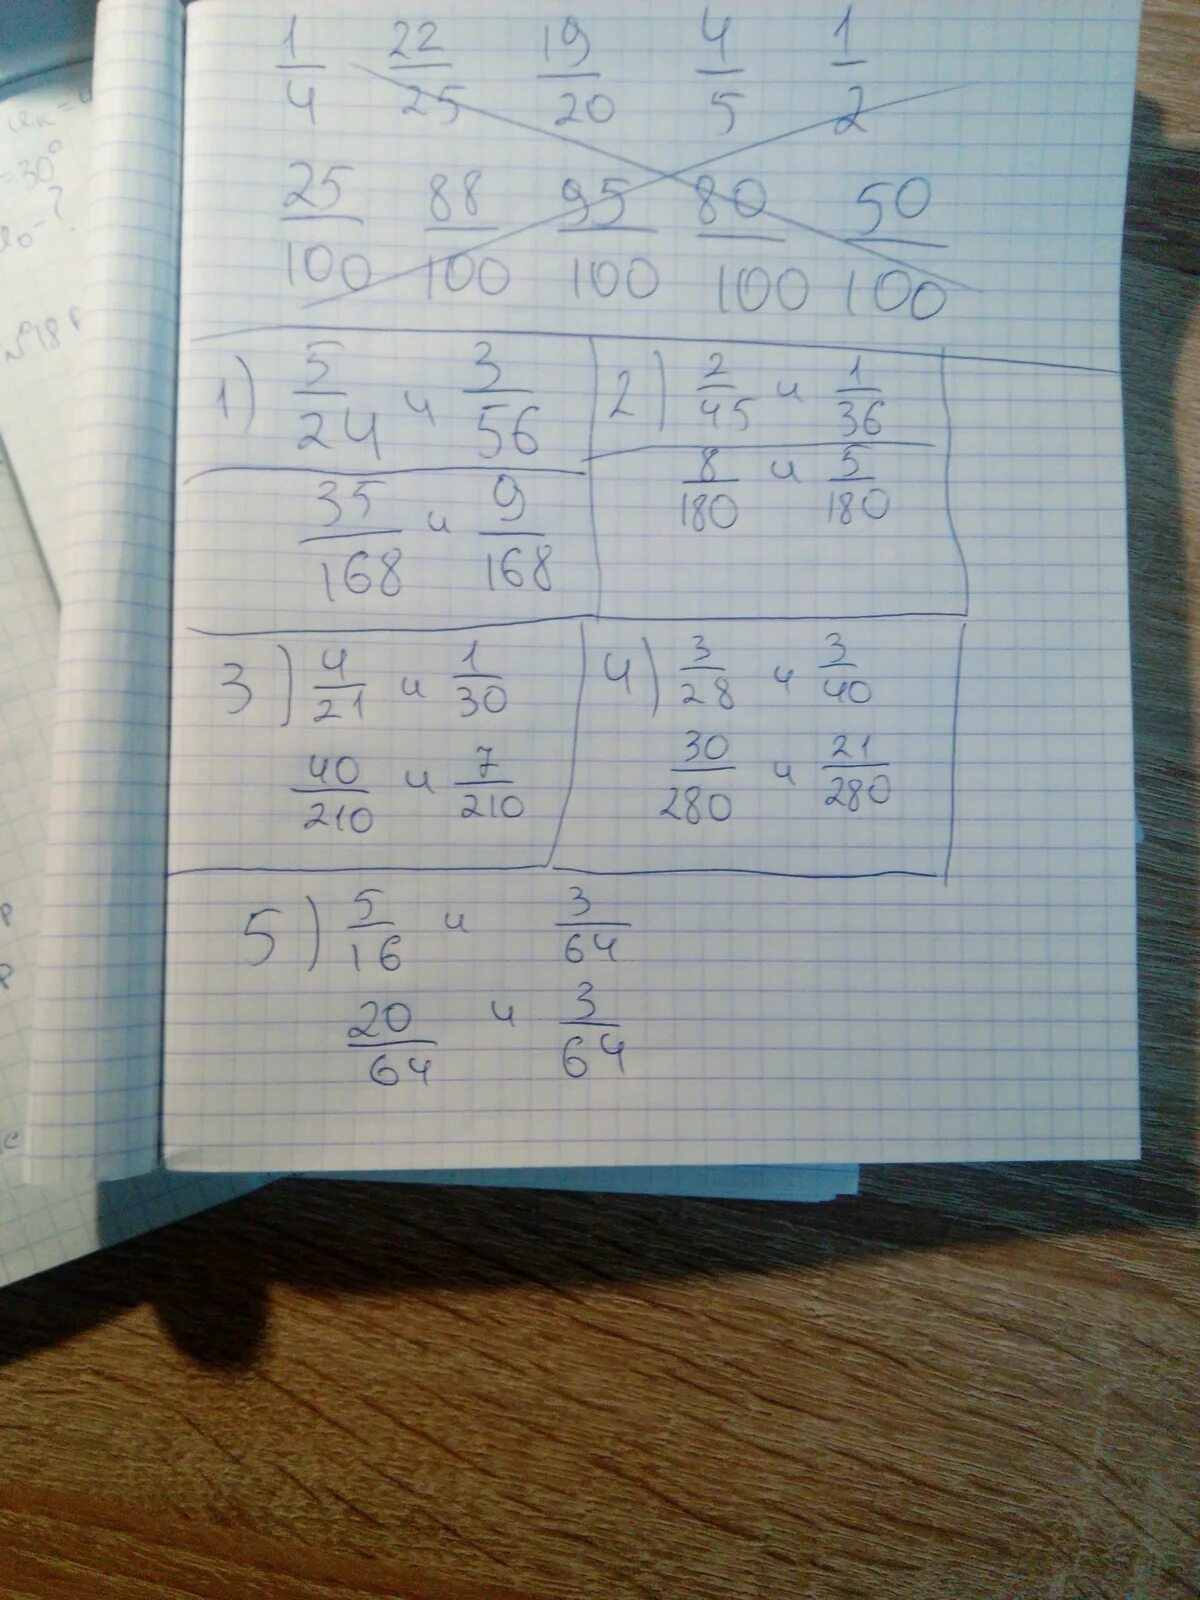 1/4 22/25 19/20 4/5 1/2
25/100 88/100 95/100 80/100 50/100
1) 5/24 и 3/56
35/168 и 9/168
2) 2/45 и 1/36
8/180 и 5/180
3) 4/21 и 1/30
40/210 и 7/210
4) 3/28 и 3/40
30/280 и 21/280
5) 5/16 и 3/64
20/64 и 3/64
=30°